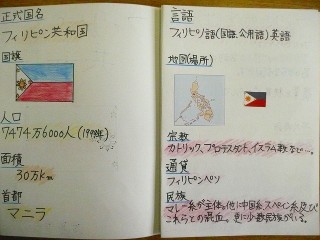 正式国名
フィリピン共和国
国旗
人口
7474万6000人(1999年)
面積
30万km²
首都
マニラ
言語
フィリピノ語(国語、公用語)英語
地図(場所)
宗教
カトリック、プロテスタント、イスラム教など…。
通貨
フィリピンペソ
民族
マレー系が主体。他に中国系、スペイン系及び
これらとの混血。更に少数民族がいる。